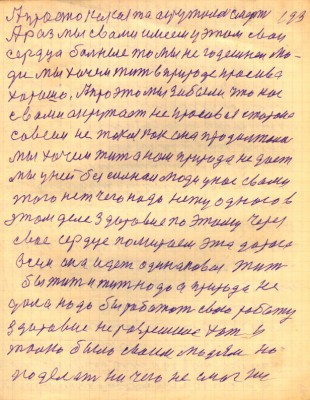 А просто какая та окрутила смерть 193
А раз мы с вами имеем у этом свои
сердца больные то мы не годеныи лю-
ди. мы хочем жить в природе красива
хорошо. А про это мы забыли что нас
с вами окружает не красивая сторона
совсем не такая как она продолжала
мы хочем жить а нам природа не дает
мы у ней бессилные люди у нас с вами
этого нет чего надо нету одного в
этом деле здоровие поэтому через
свое сердце помираем эта дорога
всем она идет одинаковая. жить
бы жить и жить надо а природа не
дала надо бы работат свою работу
здоровие не разрешает хотя в
только было своим людям но
поделат ни чего не смогли